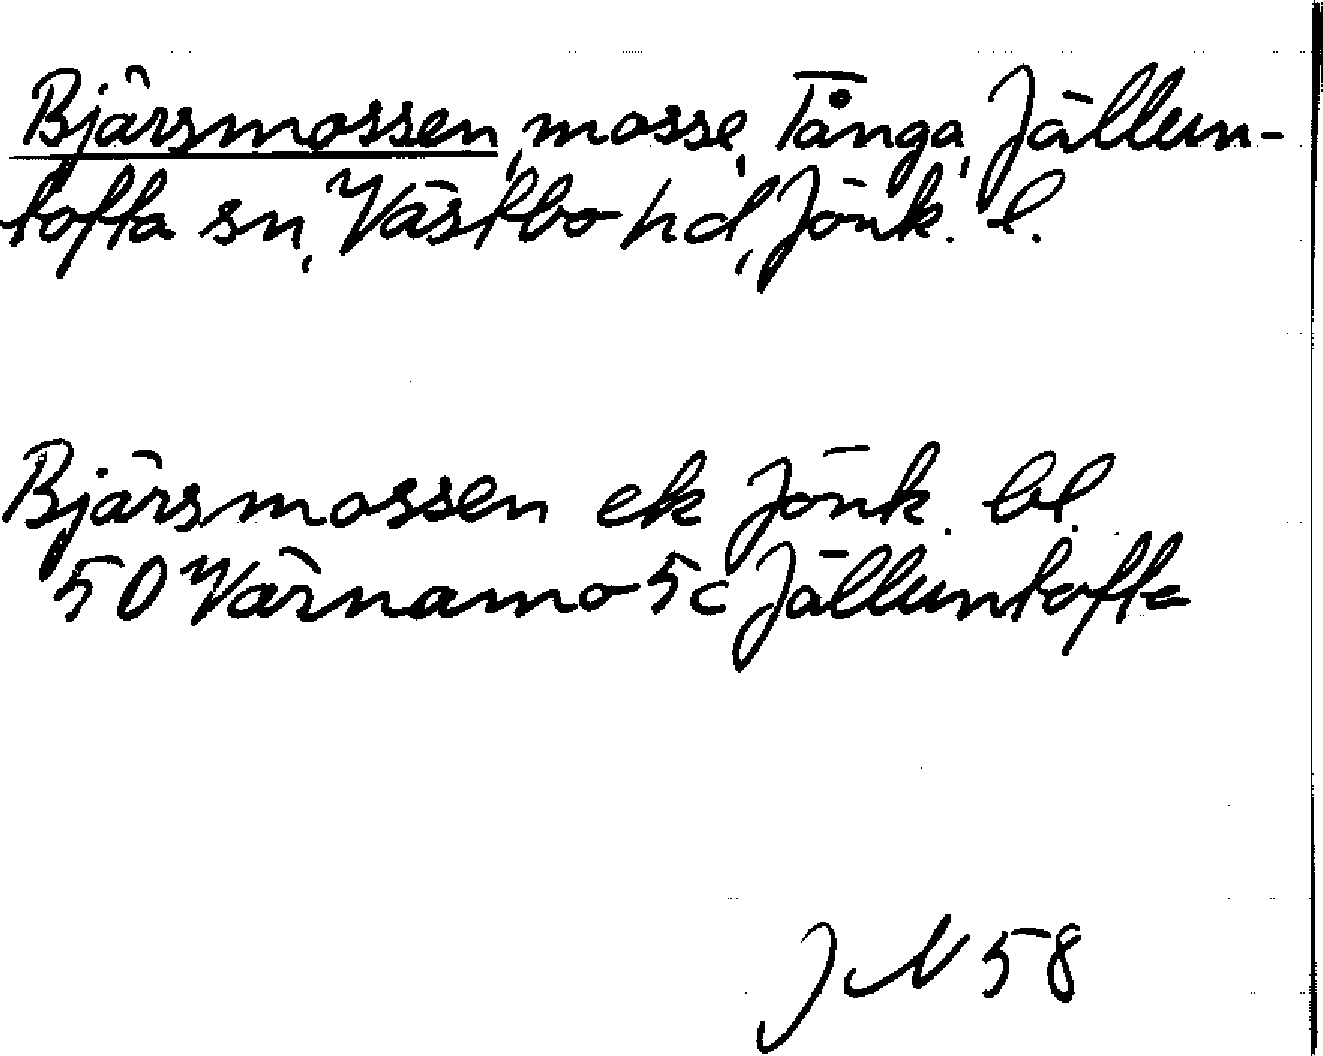 Bjärsmossen, mosse, Tånga, Jällun-
tofta sn, Västbo hd, Jönk. l.
Bjärsmossen ek Jönk. bl.
50 Värnamo 5c Jälluntofta
JN 58